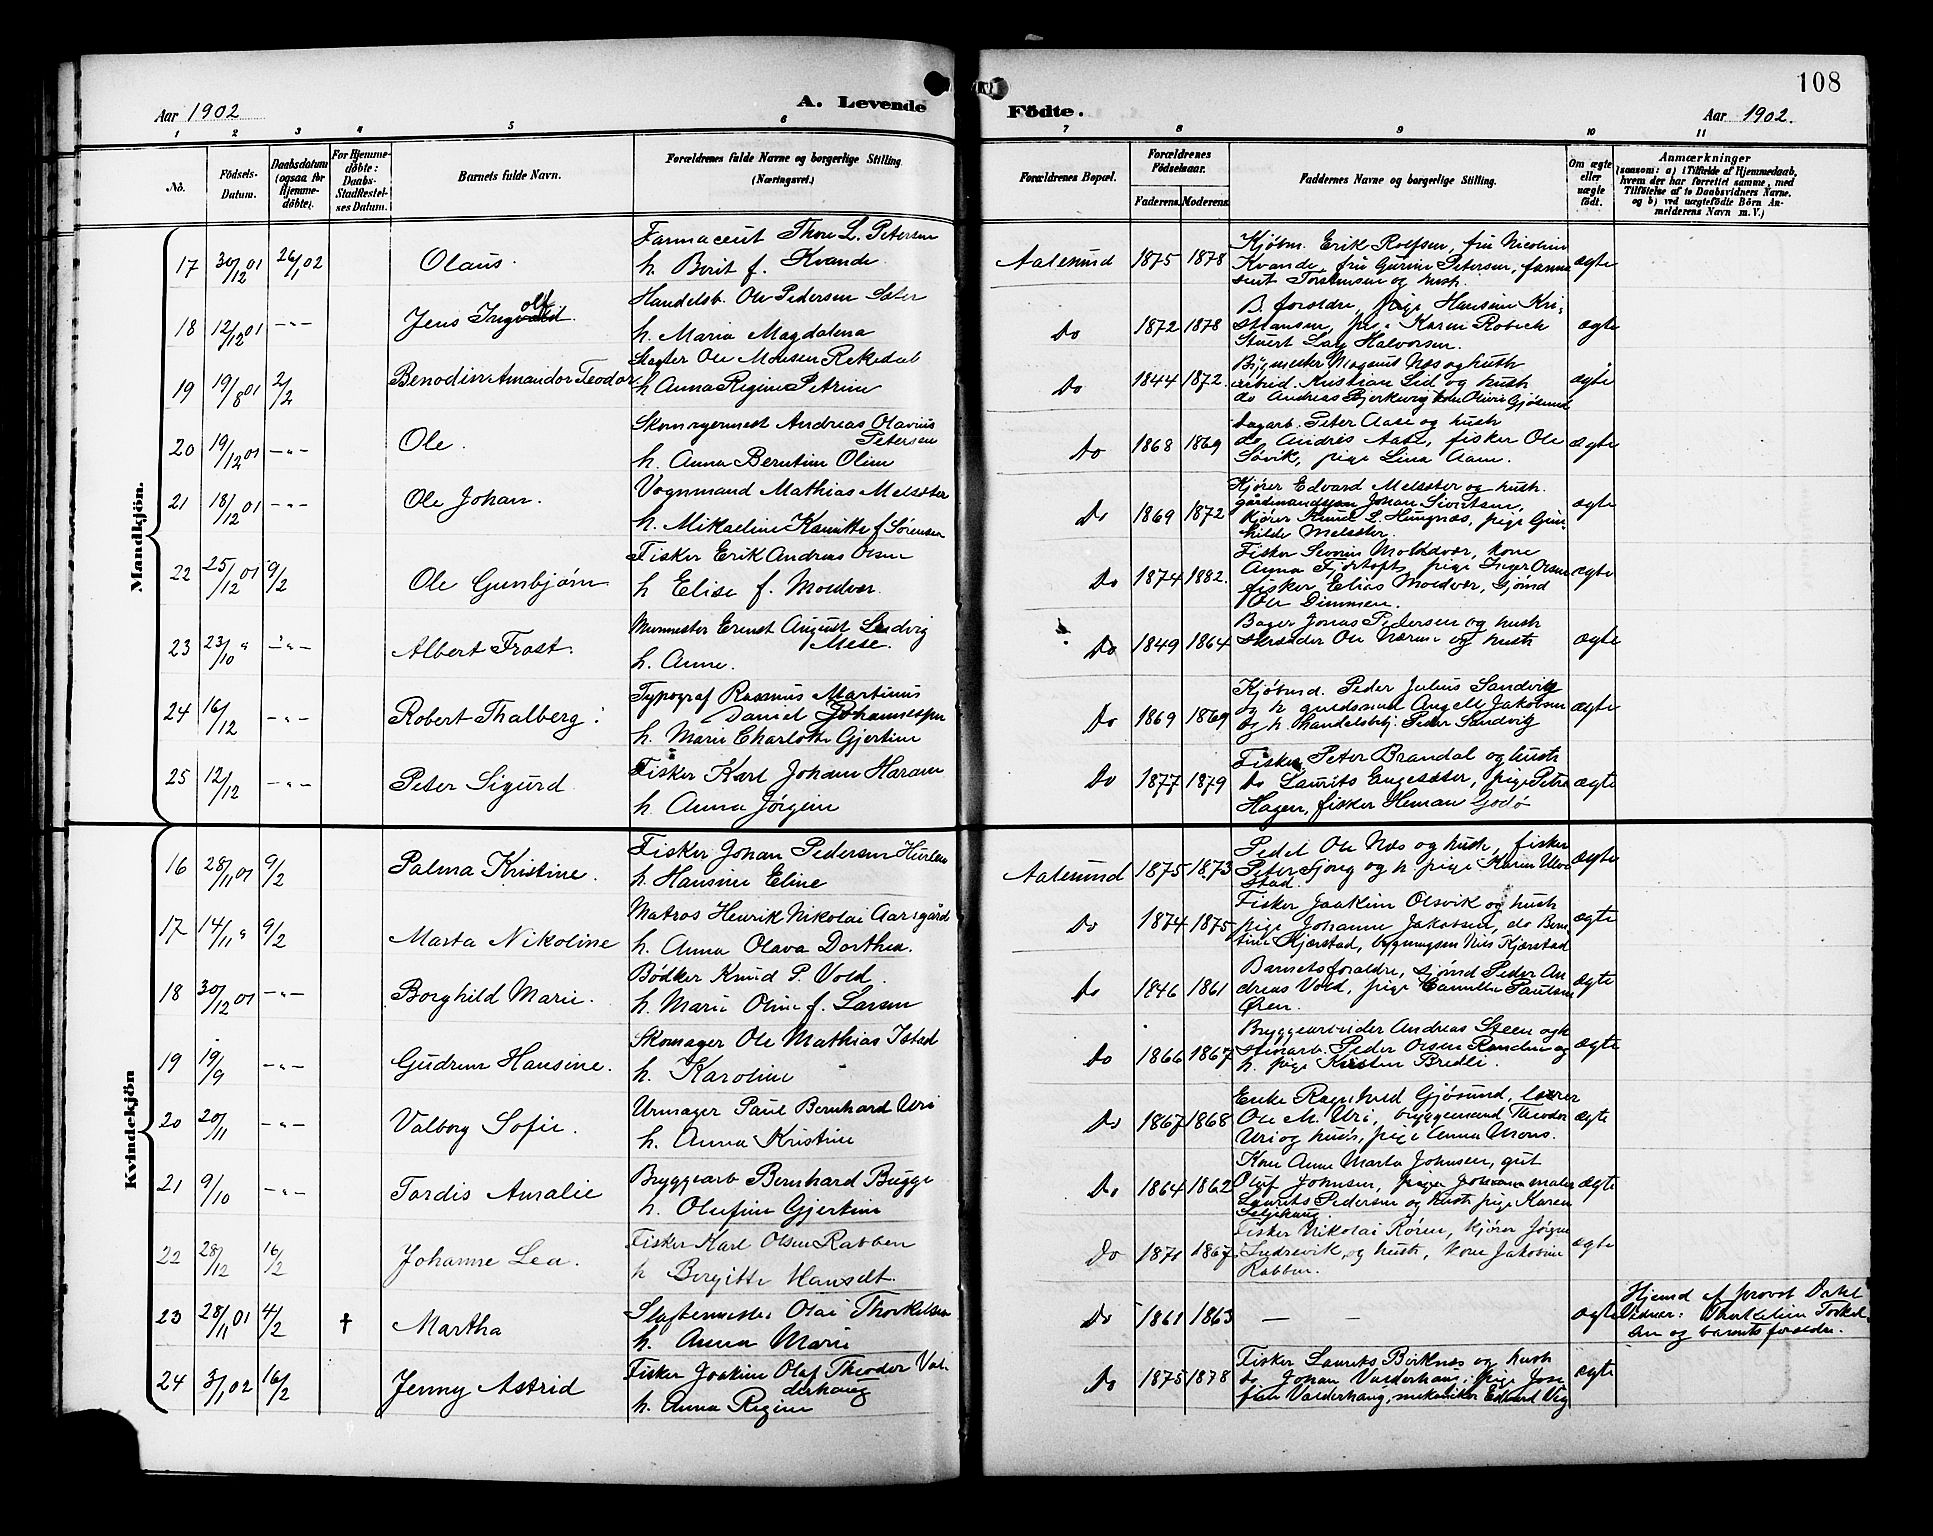 108
Aar 1902
A. Levende
Födte.
Aar 1902.
1 2 3 4 5 6 7 8 9 10 11
No.
Födsels-Datum.
Daabsdatum (ogsaa for Hjemme-döbte).
For Hjemme-döbte: Daabs-Stadfæstel-ses Datum.
Barnets fulde Navn.
Forældrenes fulde Navne og borgerlige Stilling.
(Næringsvei.)
Forældrenes Bopæl.
Forældrenes Födselsaar.
Faderens. Moderens.
Faddernes Navne og borgerlige Stilling.
Om ægte eller uægte født.
Anmærkninger
(saasom: a) i Tilfælde af Hjemmedaab,
hvem der har forrettet samme, med
Tilföielse af to Daabsvidners Navne.
og b) ved uægtefödte Börn An-
melderens Navn m. V.)
Mandkjön.
17 30/12 01 26/1 02 Olaus. Farmaceut Thore L. Petersen
h. Berit f. Kvande.
Aalesund 1875 1878 Kjøbm. Erik Rolfsen, fru Nicoline
Kvande, fru Gurine Petersen, farma
ceut Torstensen og hust. ægte
18 12/12 01 -"- Jens Ingvald olf Handelsb. Ole Pedersen Sæter
h. Maria Magdalena
Do 1872 1878 B. foreldre, pige Hansine Kri-
stiansen, pige Karen Robech
Stuert Lars Halvorsen. ægte
19 19/8 01 2/2 Benodin Amandor Teodor Slagter Ole Monsen Rekedal
h. Anna Regine Petrine
Do 1844 1872. Bygmester Magnus Næs og hustr
arbeid. Kristian Lid og hustr
do Andreas Bjerkevig kone Olivie Gjøsund ægte
20 19/12 01 -"- Ole. Skomagermest Andreas Olavius
Petersen
h. Anna Berntine Oline
Do 1868 1869 Dagarb. Peter Aase og hustr
do Andres Aase, fisker Ole
Søvik, pige Lina Aam. ægte
21 18/12 01 -"- Ole Johan. Vognmand Mathias Melsæter
h. Mikaeline Kamitte f Sørensen
Do 1869 1872 Kjører Edvard Melsæter og hust.
gårdmandssøn Johan Sivertsen,
kjører Knud L. Hungnæs, pige Gun
hilde Melsæter. ægte
22 25/12 01 9/2 Ole Gunbjørn Fisker Erik Andreas Olsen
h Elise f. Moldvær.
Do 1874 1882. Fisker Severin Moldvær, kone
Anna Fjørtoft, pige Inger Olsen
fisker Elias Moldvær, Gjømd
Ole Dimmen. ægte
23 23/10 " -"- Albert Frost. Murmester Ernst August Ludvig
Mese.
h. Anne.
Do 1849 1864 Bager Jonas Pedersen og hustr
skræder Ole Nærø og hustr ægte
24 16/12 -"- Robert Thalberg. Typograf Rasmus Martinus
Daniel Johannessen
h. Marie Charlotte Gjertine
Do 1869 1869 Kjøbmd. Peder Julius Sandvig
og h guldsmed Angell Jakobsen
og h handelsbtj. Peder Sandvig ægte
25 12/12 -"- Peter Sigurd Fisker Karl Johan Haram
h. Anna Jørgine
Do 1877 1879 Fisker Peter Brandal og hustr
do Laurits Engesæter, pige Petra
Hagen, fisker Heman Godø ægte
Kvindekjön
16 28/11 01 9/2 Palma Kristine. Fisker Johan Pedersen Hurlen
h. Hansine Eline
Aalesund 1875 1873 Pedel Ole Næs og hust, fisker
Peter Fjong og h pige Karen Ulve
stad. ægte
17 14/11 " 9/2 Marta Nikoline Matros Henrik Nikolai Aarsgård
h. Anna Olava Dorthea.
Do 1874 1875 Fisker Joakim Olsvik og hustr
pige Johanne Jakobsen, do Bern
tine Kjærstad, bygningssn Nils Kjærstad ægte
18 30/12 01 -"- Borghild Marie. Bødker Knud P. Vold.
h. Marie Oline f. Larsen
Do 1846 1861 Barnets foreldre, sjømd Peder An
dreas Vold, pige Camilla Paulsen
Øren. ægte
19 19/9 -"- Gudrun Hansine. Skomager Ole Mathias Istad
h. Karoline
Do 1866 1867 Bryggearbeider Andreas Steen og h
stenarb. Peder Olsen Randen og
h. pige Kirsten Bredli. ægte
20 20/11 -"- Valborg Sofie. Urmager Paul Bernhard Uri
h. Anna Kristine
Do 1867 1868 Enke Ragnhild Gjøsund, lærer
Ole M. Uri, bryggemand Theodor
Uri og hustr, pige Anna Mons. ægte
21 9/10 -"- Tordis Amalie Bryggearb Bernhard Bugge
h. Olufine Gjertine
Do 1864 1862 Kone Anne Marta Johnsen, gut
Oluf Johnsen, pige Johanne maler
Laurits Pedersen og hustr pige Karen
Seljehaug. ægte
22 28/12 16/2 Johanne Lea. Fisker Karl Olsen Rabben
h Bergitte Hansdt.
Do 1871 1867 Fisker Nikolai Røren, kjører Jørgen
Indrevik, og hustr, kone Jakobine
Rabben. ægte
23 28/11 01 4/2 † Martha Slagtermester Olai Thorkelsen
h. Anna Marie
Do 1861 1863 — — ægte Hjemd af provst Dahl
Vidner: Thorkeline Torkel
sen og barnets foreldre.
24 3/1 02 16/2 Jenny Astrid Fisker Joakim Olaf Theodor Val
derhaug
h. Anna Regine
Do 1875 1878 Fisker Laurits Birknæs og hustr
do Johan Valderhaug, pige Jose
fine Valderhaug, mekaniker Edvard Vig ægte